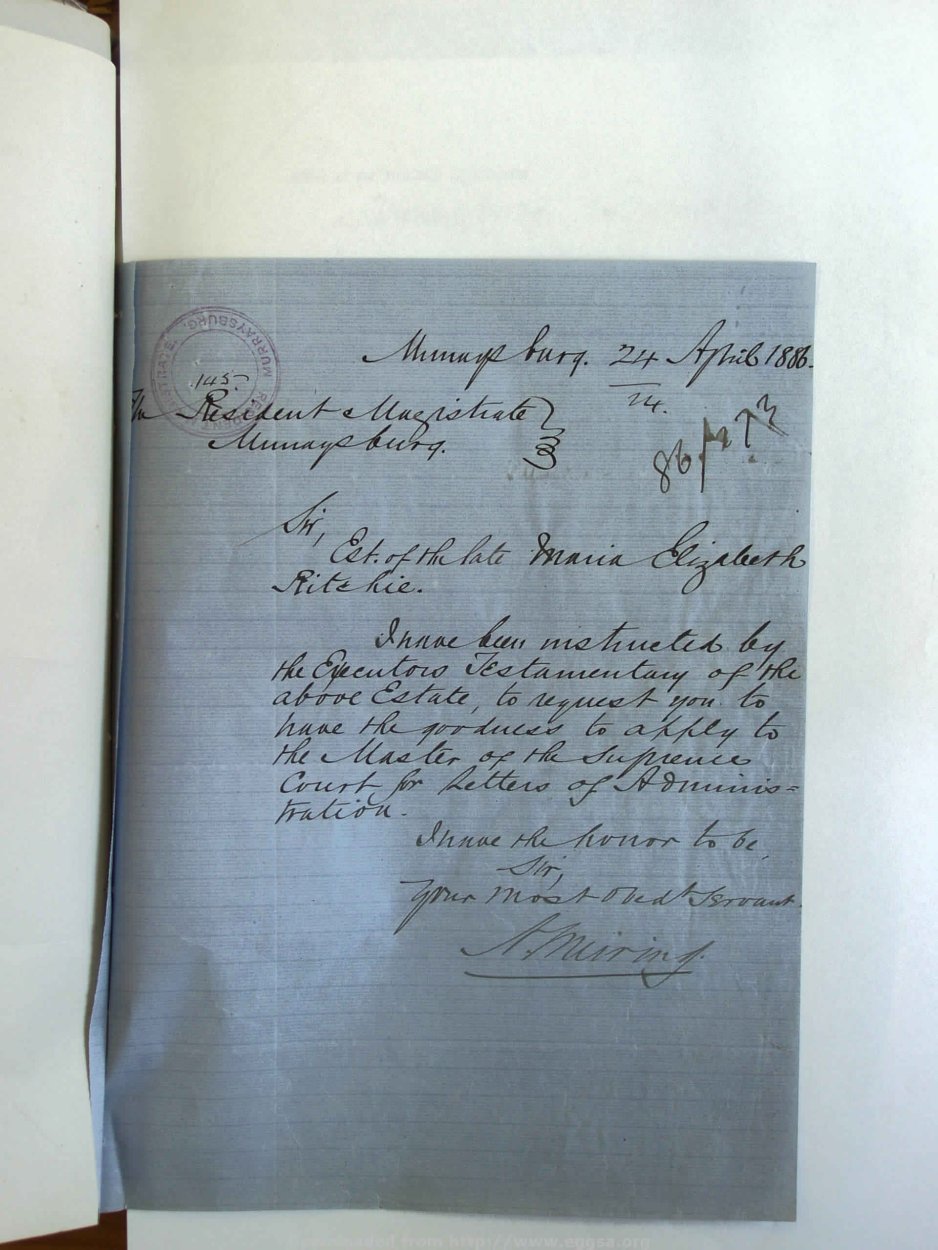 Murraysburg. 24 April 1886.
24.
MURRAYSBURG.
145
The Resident Magistrate
Murraysburg.
86
Sir,
Est. of the late Maria Elizabeth
Ritchie.
I have been instructed by
the Executors Testamentary of the
above Estate, to request you to
have the goodness to apply to
the Master of the Supreme
Court for Letters of Adminis=
tration.
I have the honor to be,
Sir,
Your most Obedt Servant.
A. Meiring.
Downloaded from http://www.eggsa.org